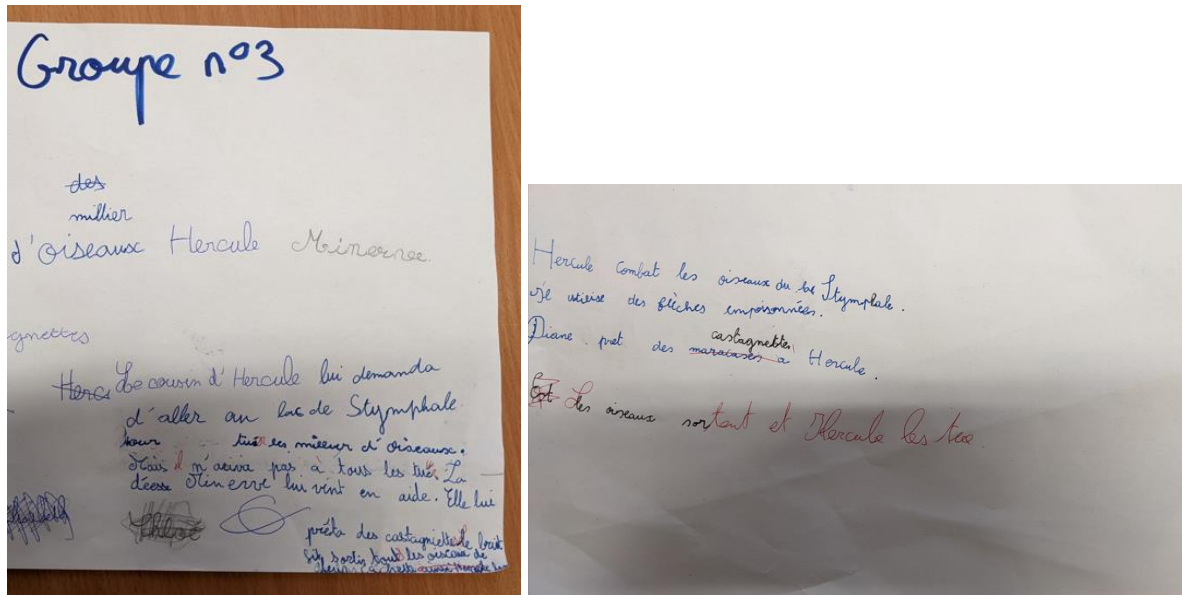 Groupe n°3
des
millier
d'oiseaux Hercule Minerve.
gnettes
Herc Le cousin d'Hercule lui demanda
d'aller au lac de Stymphale
pour tuer les millier d'oiseaux.
Mais il n'ariva pas à tous les tuer. La
déesse Minerve lui vint en aide. Elle lui
Chloé
prêta des castagniettes le bruit
fit sortir tout les oiseaux de
Hercule combat les oiseaux du lac Stymphale.
Il utilise des flèches empoisonnées.
castagnettes
Diane pret des maracases a Hercule.
des oiseaux sortant et Hercule les tue.